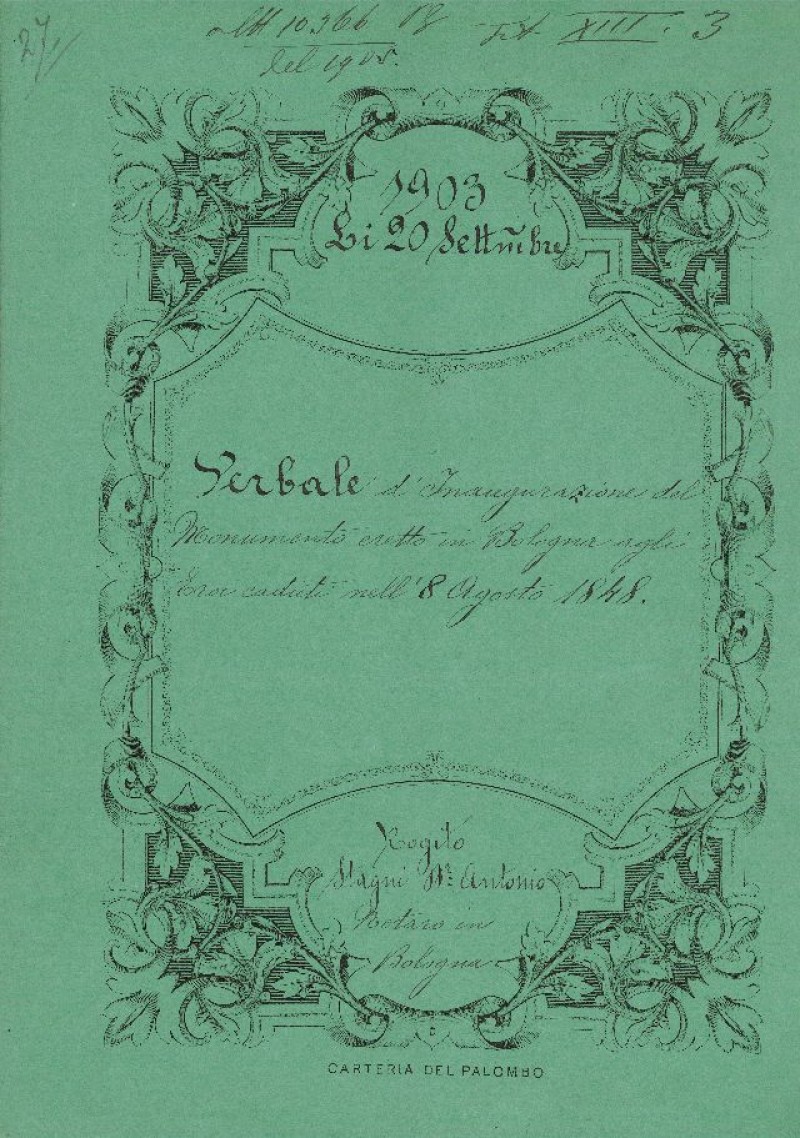 27
Att 10366 Tit XIII. 3
del 1905.
1903
Li 20 Settmbre
Verbale d'Inaugurazione del
Monumento eretto in Bologna agli
Eroi caduti nell'8 Agosto 1848.
Rogito
Stagni Dr. Antonio
Notaro in
Bologna
CARTERIA DEL PALOMBO